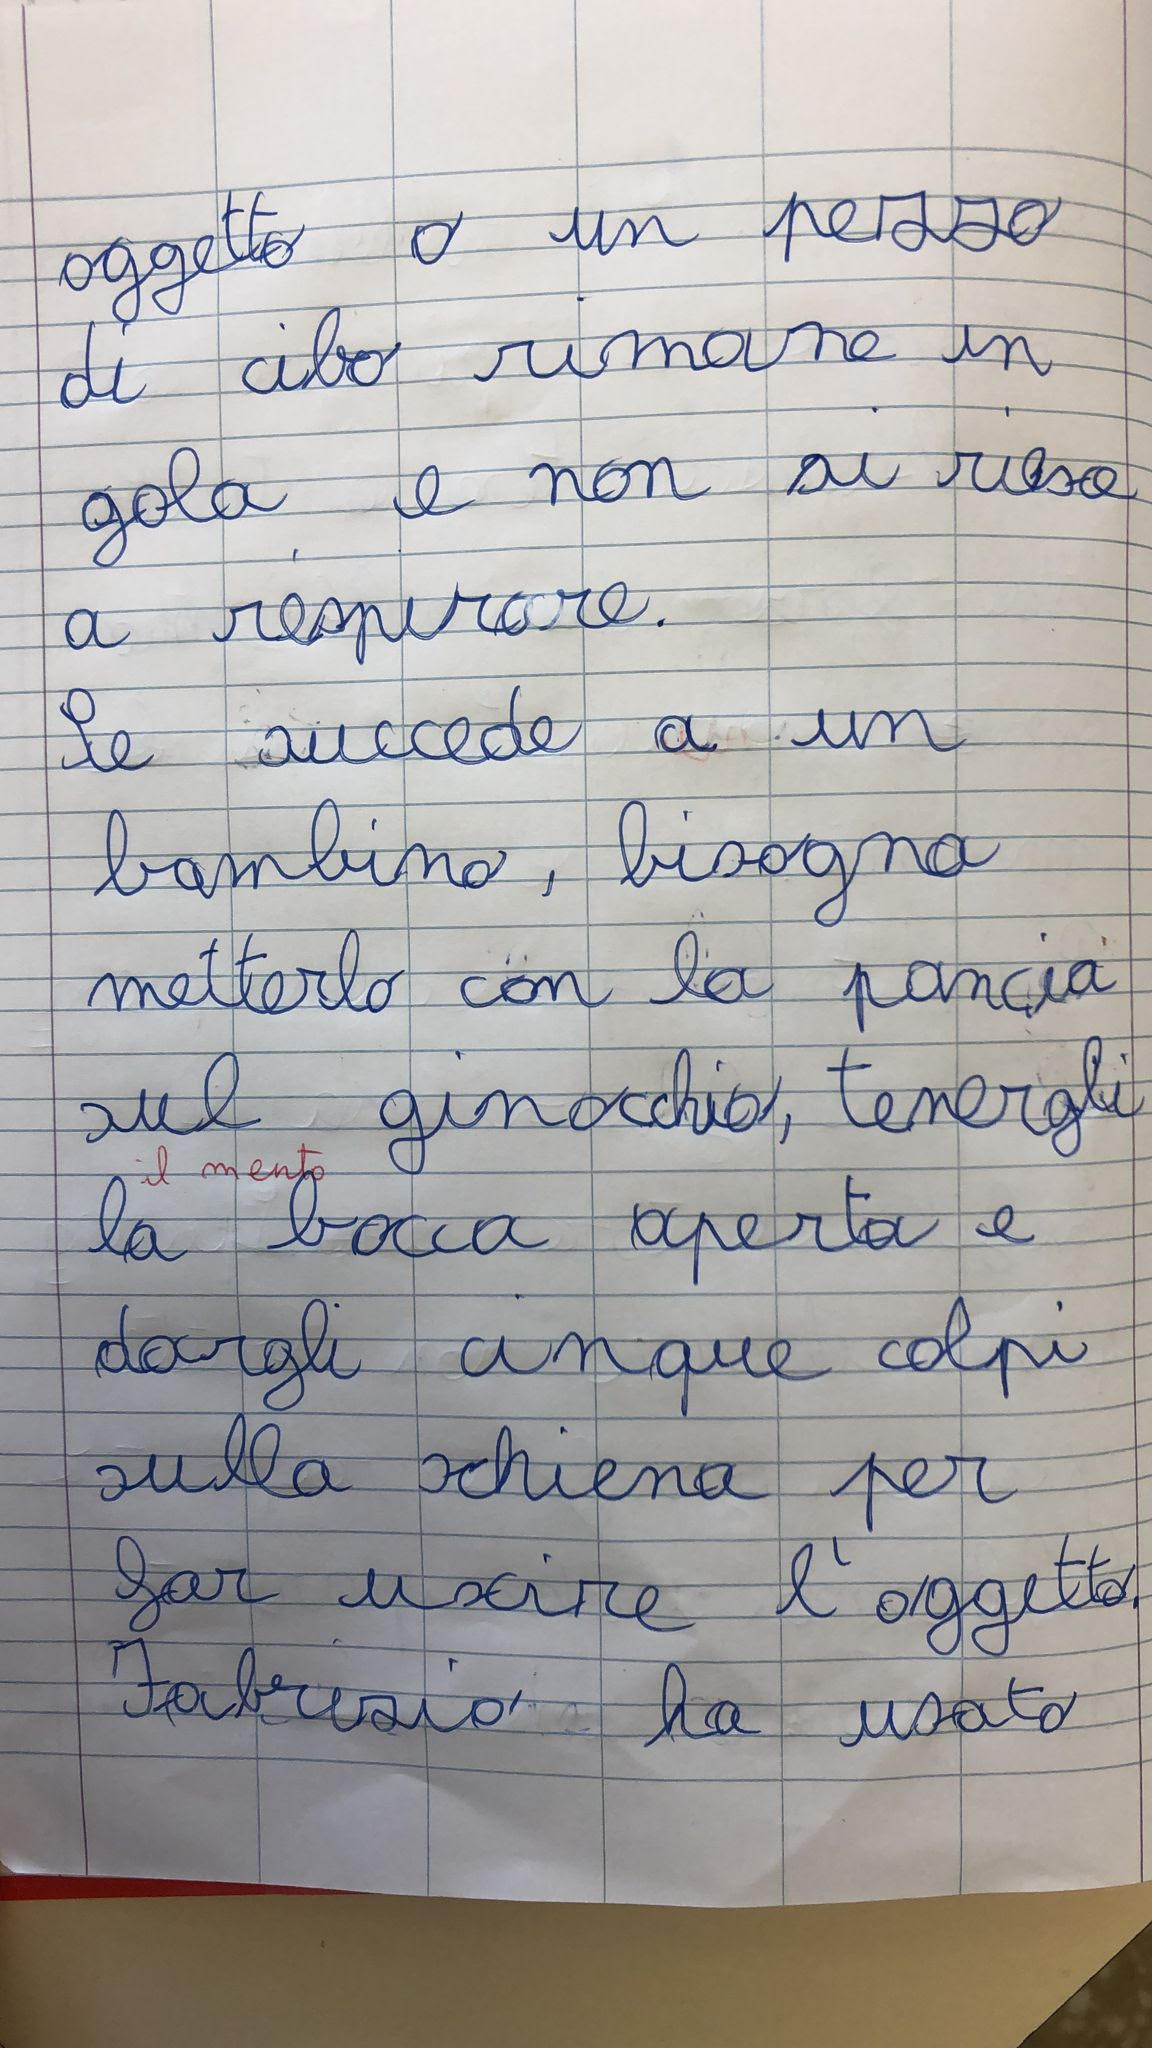 oggetto o un pezzo
di cibo rimane in
gola e non si riesce
a respirare.
Se succede a un
bambino, bisogna
metterlo con la pancia
sul ginocchio, tenergli
il mento
la bocca aperta e
dargli cinque colpi
sulla schiena per
far uscire l'oggetto.
Fabrizio ha usato